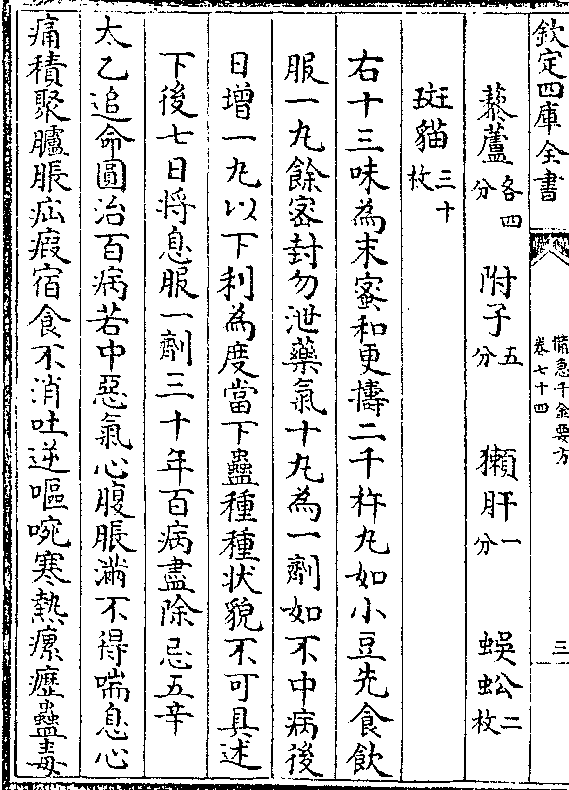 欽定四庫全書
備急千金要方
卷七十四
三
藜蘆各四分 附子五分 獺肝一分 蜈蚣二枚
斑猫三十枚
右十三味為末蜜和更擣二千杵丸如小豆先食飲
服一丸餘密封勿泄藥氣十丸為一劑如不中病後
日增一丸以下利為度當下蠱種種状貌不可具述
下後七日将息服一劑三十年百病盡除忌五辛
太乙追命圓治百病若中惡氣心腹脹滿不得喘息心
痛積聚臚脹疝瘕宿食不消吐逆嘔啘寒熱瘰癧蠱毒